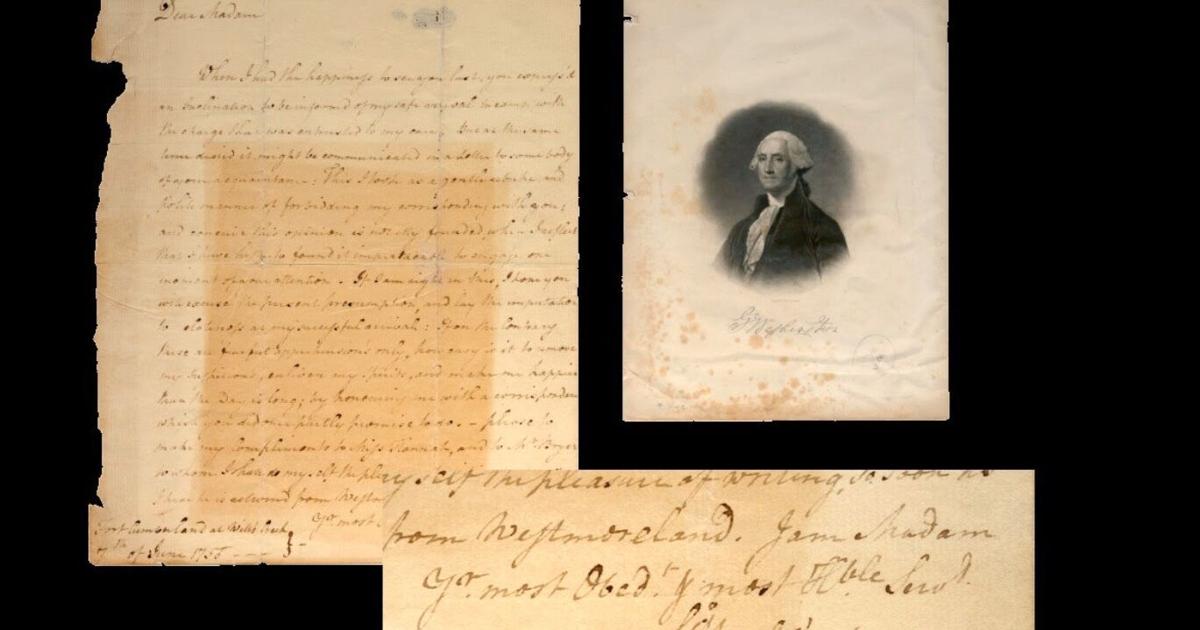 Dear Madam
When I had the happiness to see you last, you express'd
an inclination to be informed of my safe arrival in camp, with
the charge that was entrusted to my care; but at the same
time desird it might be communicated in a Letter to some body
of your acquaintance: This I took as a gentle rebuke and
Polite manner of forbidding my corrisponding with you;
and conceive this opinion is not illy founded, when I reflect
that I have hitherto found it impracticable to engage one
moment of your attention. If I am right in this, I hope you
will excuse the present presumption, and lay the imputation
to elateness at my successful arrival: If on the Contrary
these are fearful apprehensions only, how easy is it to remove
my suspicions, enliven my Spirits, and make me happier
than the Day is long; by honouring me with a corrispondence
which you did once partly promise to do. - please to
make my Compliments to Miss Hannah, and to Mr. Bryan
to whom I shall do myself the plea
I hear he is returnd from Westm
Yr. most
Fort Cumberland at Wills Creek
7th of June 1755
myself the pleasure of writing, so soon as
from Westmoreland. I am Madam
Yr. most Obedt. & most Hble Servt.
G Washington